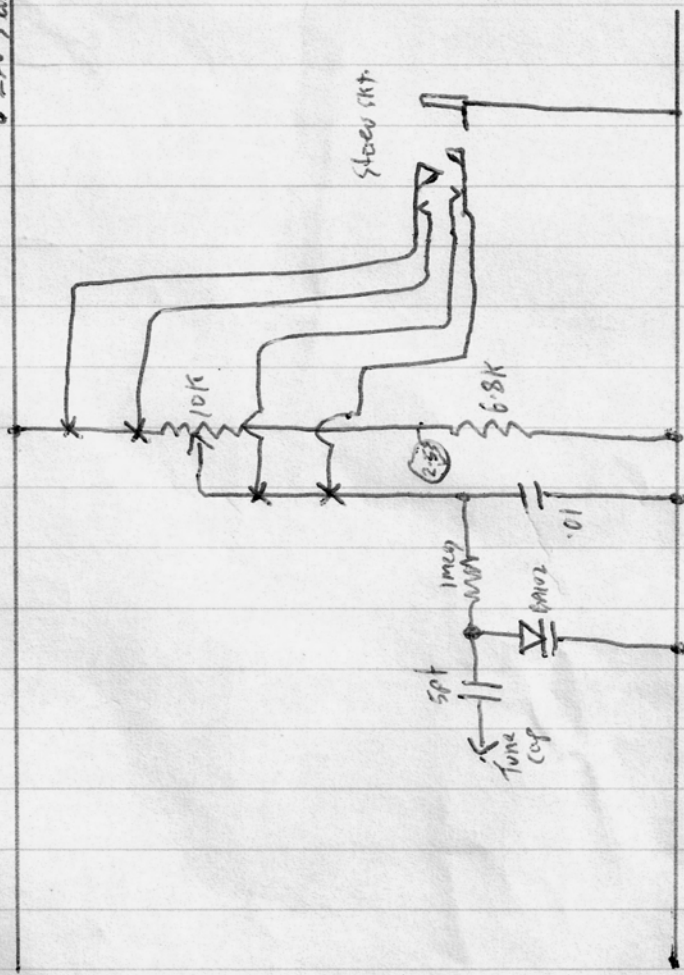 Stereo Skt.
10K
6.8K
2.5
.01
1meg
BA102
5pf
Tune
Cap